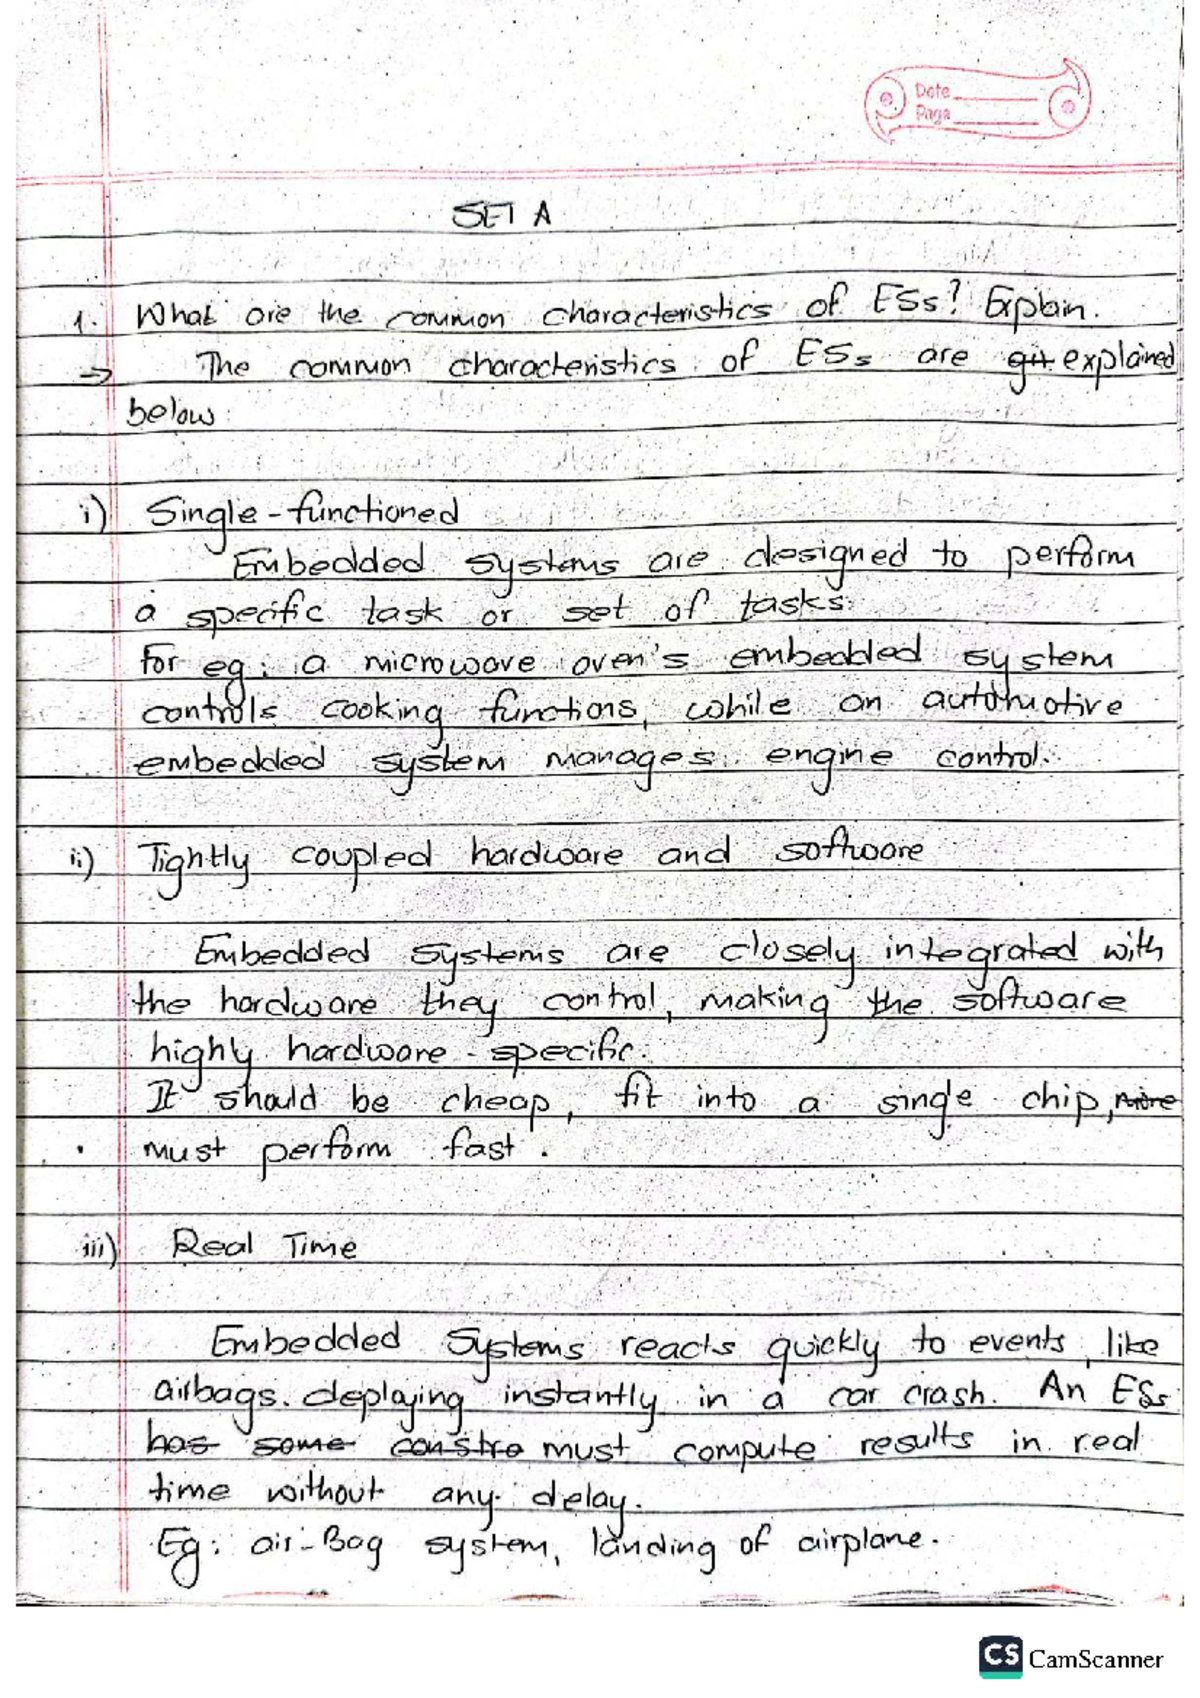 Date
Page
SET A
1. What are the common characteristics of ESs? Explain.
→ The common characteristics of ESs are explained
below:
i) Single-functioned
Embedded systems are designed to perform
a specific task or set of tasks.
For eg: a microwave oven's embedded system
controls cooking functions, while an automotive
embedded system manages engine control.
ii) Tightly coupled hardware and software
Embedded systems are closely integrated with
the hardware they control, making the software
highly hardware-specific.
It should be cheap, fit into a single chip, more
must perform fast.
iii) Real Time
Embedded Systems reacts quickly to events, like
airbags deploying instantly in a car crash. An ESs
has some constra must compute results in real
time without any delay.
Eg: air-Bag system, landing of airplane.
CS CamScanner